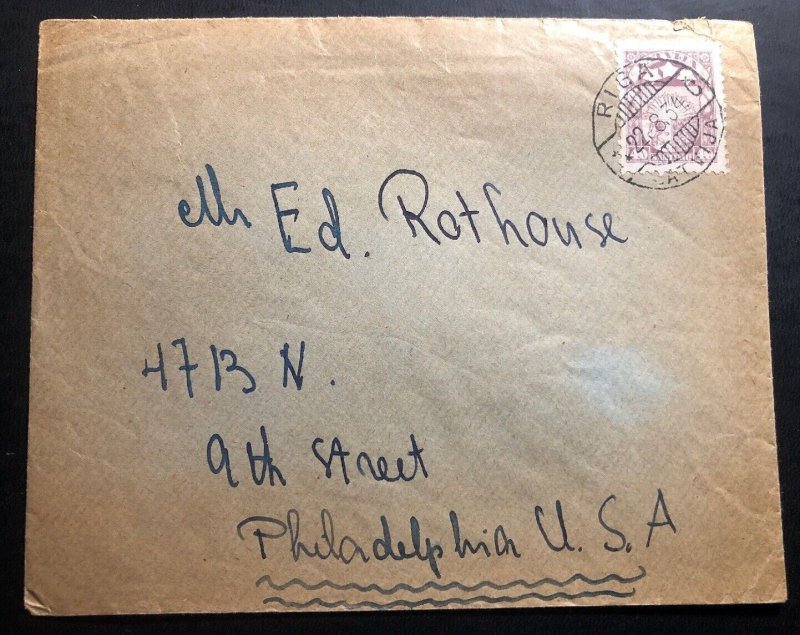 RIGA
22 8 3
LATVIJA
Mr Ed. Rothouse
4713 N.
9th Street
Philadelphia U.S.A